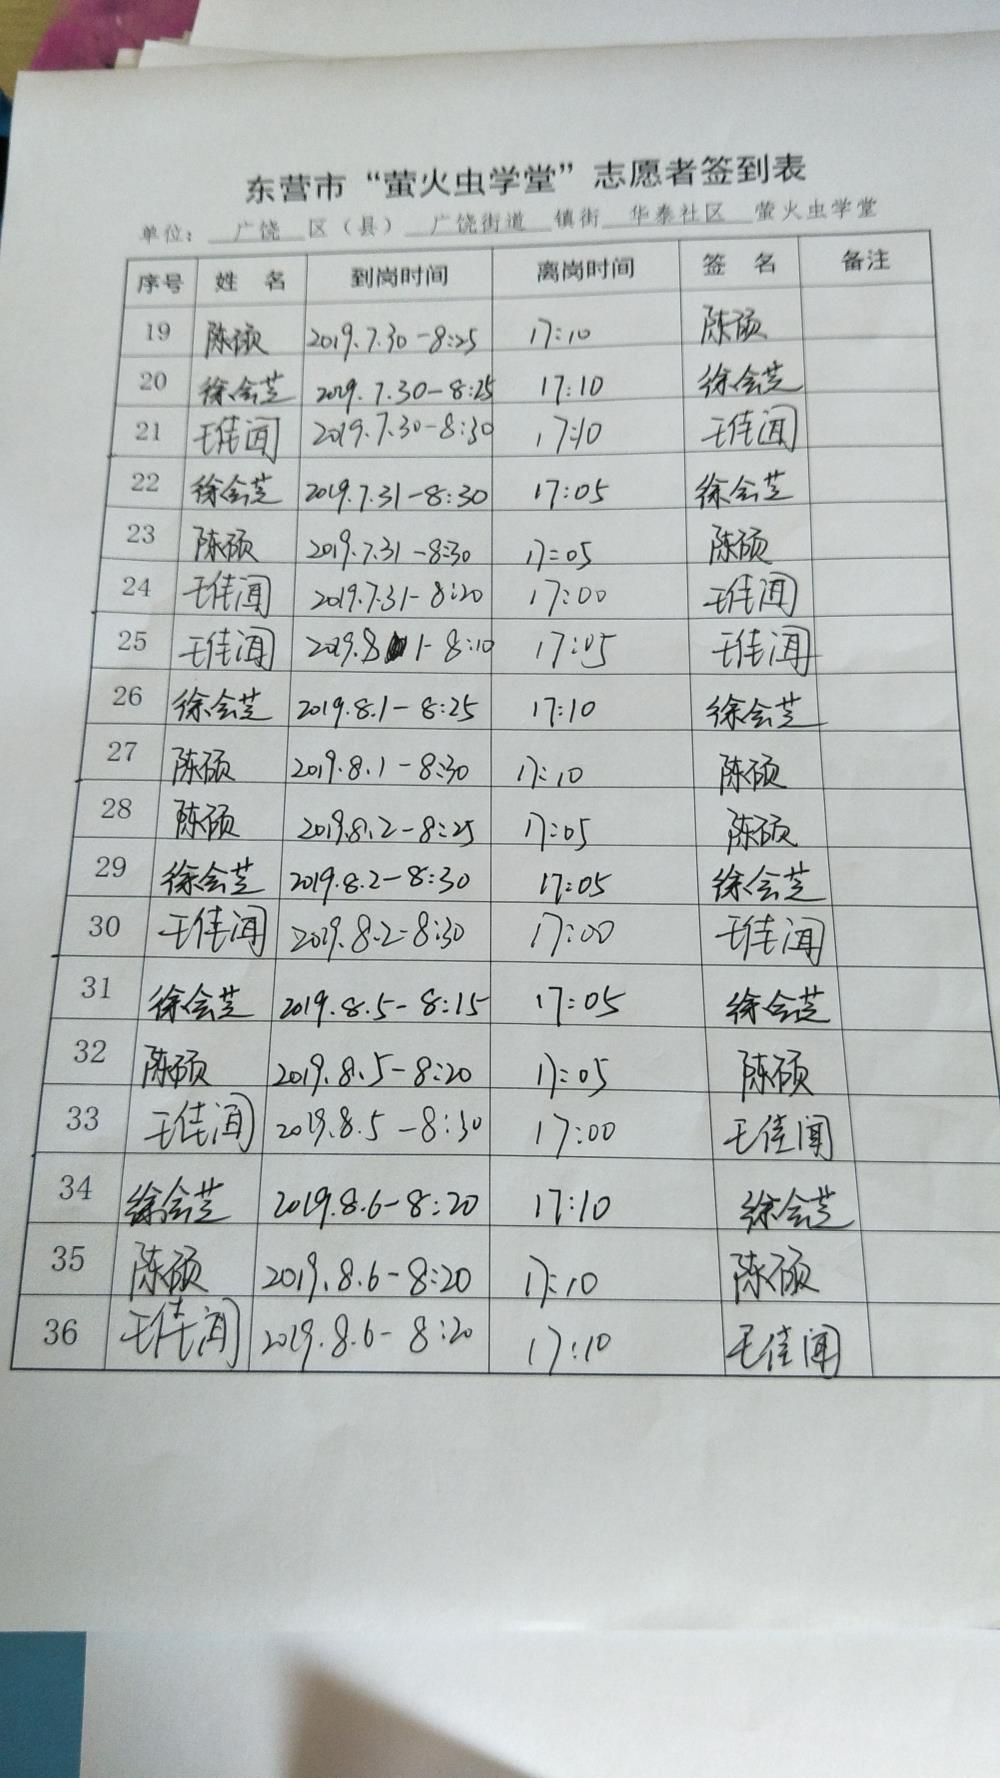 东营市“萤火虫学堂”志愿者签到表
单位： 广饶 区（县） 广饶街道 镇街 华泰社区 萤火虫学堂
序号 姓 名 到岗时间 离岗时间 签 名 备注
19 陈硕 2019.7.30-8:25 17:10 陈硕
20 徐会芝 2019.7.30-8:25 17:10 徐会芝
21 王佳闻 2019.7.30-8:30 17:10 王佳闻
22 徐会芝 2019.7.31-8:30 17:05 徐会芝
23 陈硕 2019.7.31-8:30 17:05 陈硕
24 王佳闻 2019.7.31-8:20 17:00 王佳闻
25 王佳闻 2019.8 1-8:10 17:05 王佳闻
26 徐会芝 2019.8.1-8:25 17:10 徐会芝
27 陈硕 2019.8.1-8:30 17:10 陈硕
28 陈硕 2019.8.2-8:25 17:05 陈硕
29 徐会芝 2019.8.2-8:30 17:05 徐会芝
30 王佳闻 2019.8.2-8:30 17:00 王佳闻
31 徐会芝 2019.8.5-8:15 17:05 徐会芝
32 陈硕 2019.8.5-8:20 17:05 陈硕
33 王佳闻 2019.8.5-8:30 17:00 王佳闻
34 徐会芝 2019.8.6-8:20 17:10 徐会芝
35 陈硕 2019.8.6-8:20 17:10 陈硕
36 王佳闻 2019.8.6-8:20 17:10 王佳闻